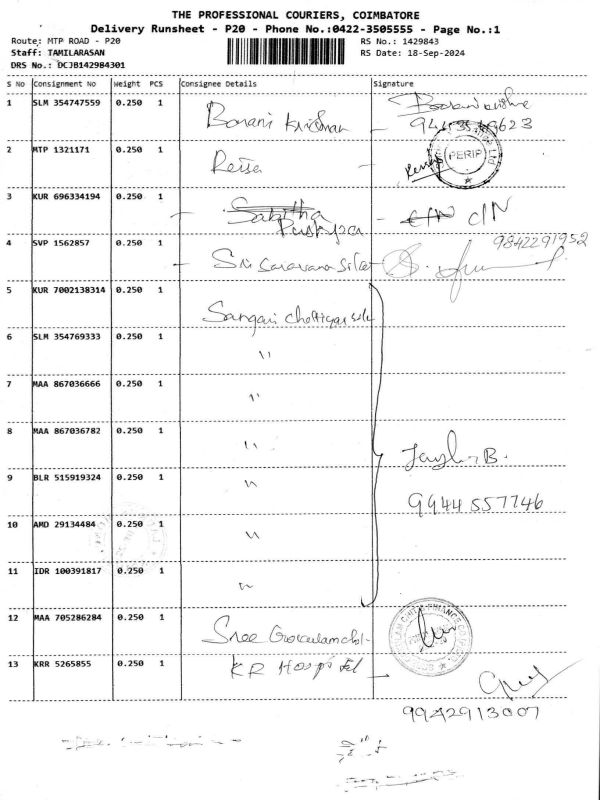 THE PROFESSIONAL COURIERS, COIMBATORE
Delivery Runsheet - P20 - Phone No.:0422-3505555 - Page No.:1
Route: MTP ROAD - P20
RS No.: 1429843
Staff: TAMILARASAN
RS Date: 18-Sep-2024
DRS No.: DCJB142984301
S No Consignment No Weight PCS Consignee Details Signature
1 SLM 354747559 0.250 1 Bovani Krishnan
2 MTP 1321171 0.250 1
PERIF
3 KUR 696334194 0.250 1 Sabitha
C/N C/N
4 SVP 1562857 0.250 1 Sri Saravana
9842291952
5 KUR 7002138314 0.250 1
6 SLM 354769333 0.250 1 "
7 MAA 867036666 0.250 1 "
8 MAA 867036782 0.250 1 "
9 BLR 515919324 0.250 1 "
9944557746
10 AMD 29134484 0.250 1 "
11 IDR 100391817 0.250 1 "
12 MAA 705286284 0.250 1 Sree
13 KRR 5265855 0.250 1 KR Hospital
9942913007